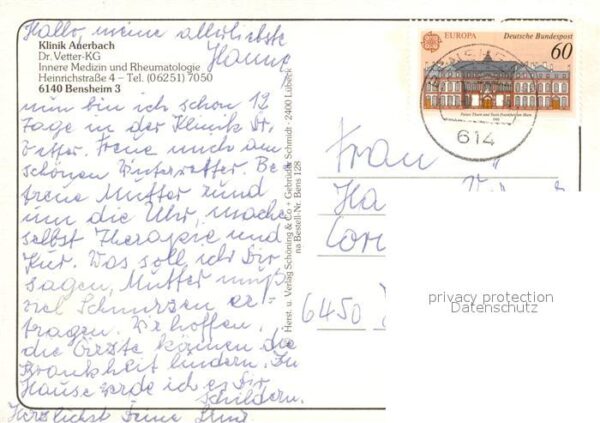 Hallo, meine allerliebste
Hanne
Klinik Auerbach
Dr. Vetter-KG
Innere Medizin und Rheumatologie
Heinrichstraße 4 – Tel. (06251) 7050
6140 Bensheim 3
nun bin ich schon 12
Tage in der Klinik Dr.
Vetter. Freue mich am
schönen Winterwetter. Be-
treue Mutter rund
um die Uhr, mache
selbst Therapie und
Kur. Was soll ich Dir
sagen, Mutter muß
viel Schmerzen er-
tragen. Wir hoffen,
die Ärzte können die
Krankheit lindern. Zu
Hause werde ich es Dir
schildern.
Herzlichst Deine
Herst. u. Verlag Schöning & Co + Gebrüder Schmidt · 2400 Lübeck
na Bestell-Nr. Bens 128
EUROPA
Deutsche Bundespost
60
614
Frau
Ha
6450
privacy protection
Datenschutz